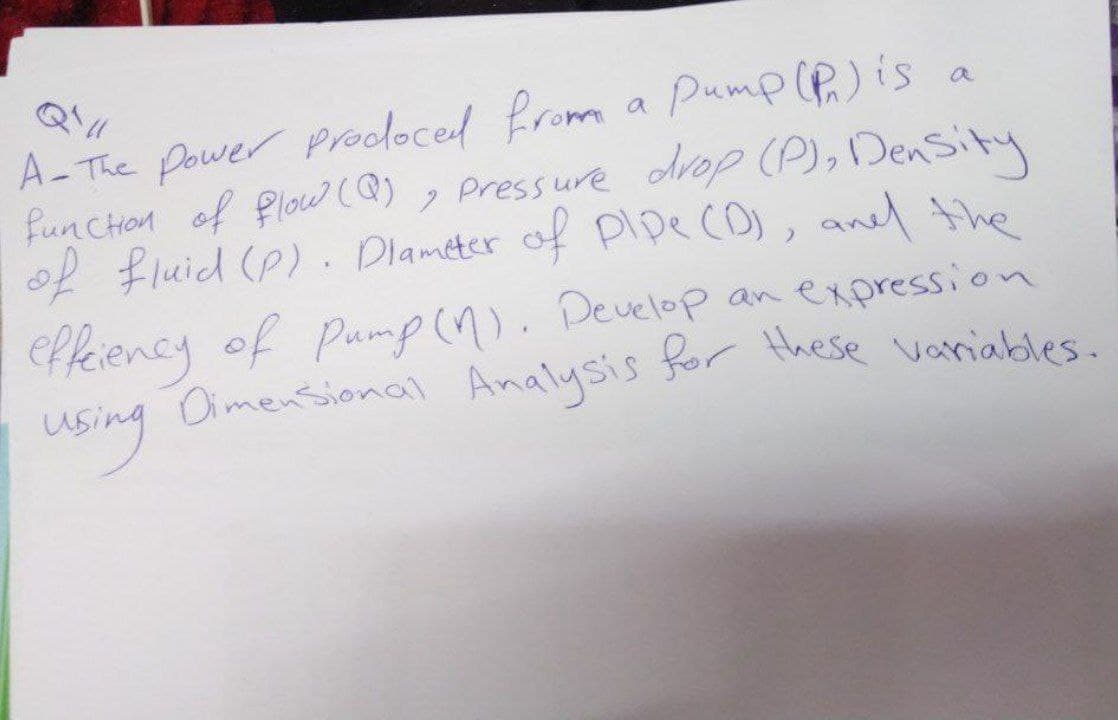 Q1//
A- The power prodoced from a pump (Pn) is a
function of flow (Q) , pressure drop (P), Density
of fluid (ρ) . Diameter of pipe (D) , and the
effeciency of pump (η) . Develop an expression
using Dimensional Analysis for these variables.